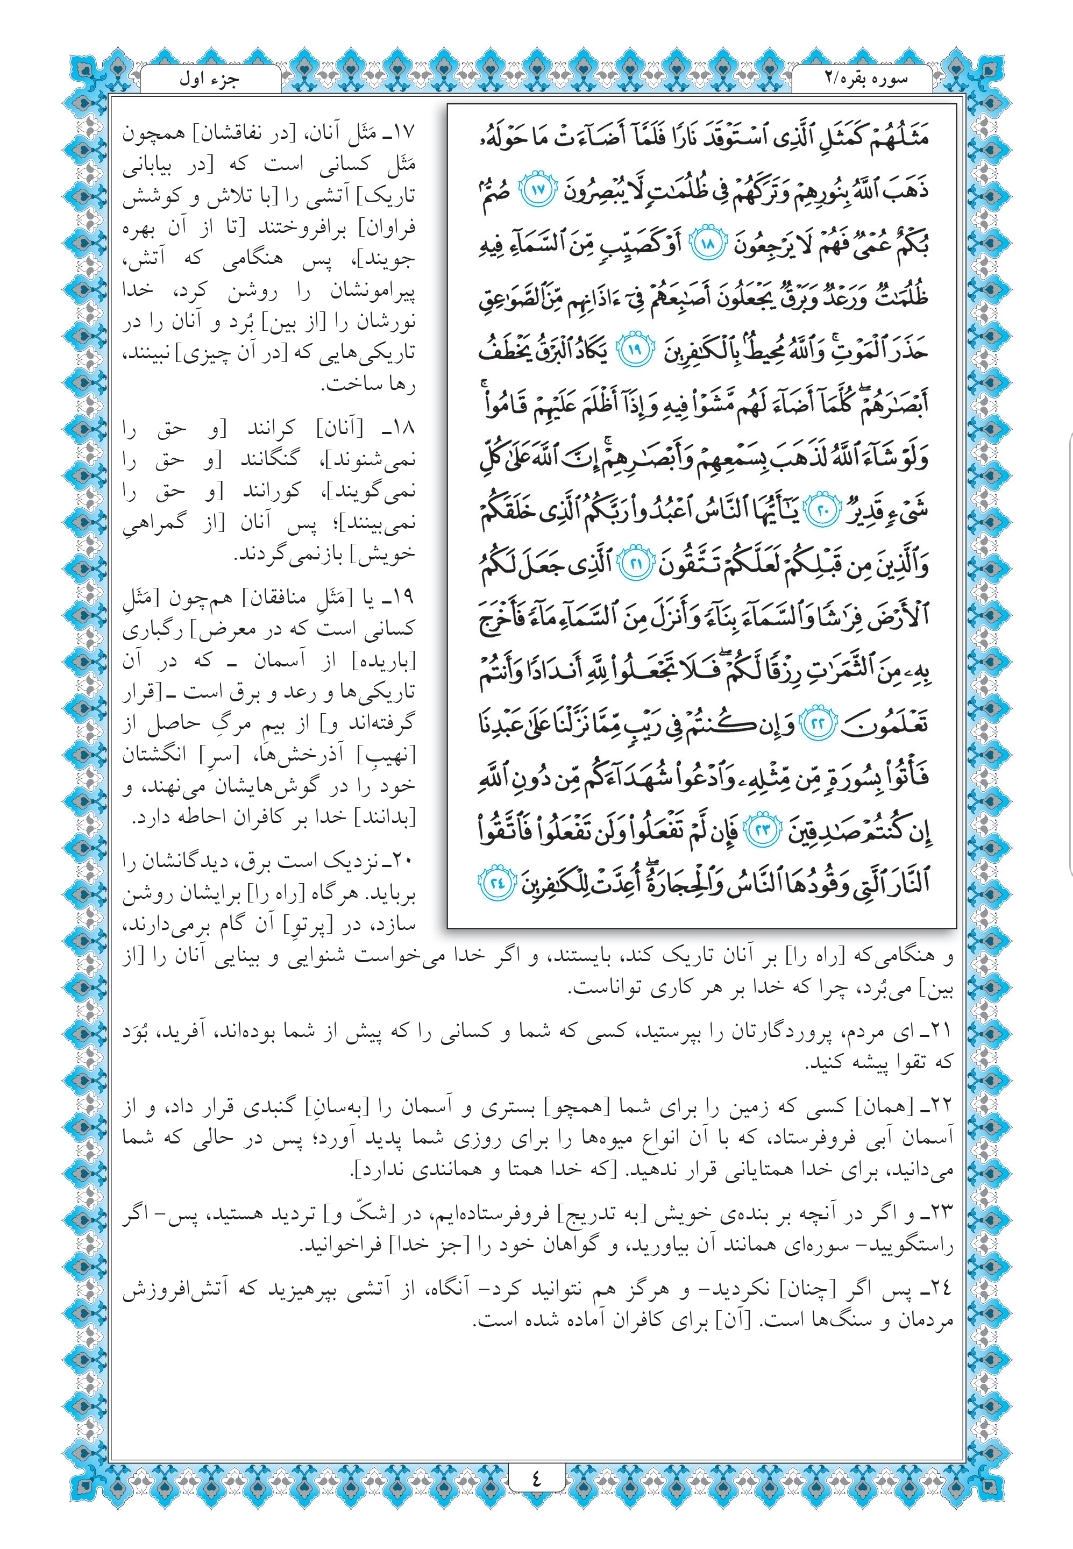 سوره بقره/٢
جزء اول
مَثَلُهُمْ كَمَثَلِ ٱلَّذِى ٱسْتَوْقَدَ نَارًا فَلَمَّآ أَضَآءَتْ مَا حَوْلَهُۥ
ذَهَبَ ٱللَّهُ بِنُورِهِمْ وَتَرَكَهُمْ فِى ظُلُمَـٰتٍ لَّا يُبْصِرُونَ ١٧ صُمٌّۢ
بُكْمٌ عُمْىٌ فَهُمْ لَا يَرْجِعُونَ ١٨ أَوْ كَصَيِّبٍ مِّنَ ٱلسَّمَآءِ فِيهِ
ظُلُمَـٰتٌ وَرَعْدٌ وَبَرْقٌ يَجْعَلُونَ أَصَـٰبِعَهُمْ فِىٓ ءَاذَانِهِم مِّنَ ٱلصَّوَٰعِقِ
حَذَرَ ٱلْمَوْتِ ۚ وَٱللَّهُ مُحِيطٌۢ بِٱلْكَـٰفِرِينَ ١٩ يَكَادُ ٱلْبَرْقُ يَخْطَفُ
أَبْصَـٰرَهُمْ ۖ كُلَّمَآ أَضَآءَ لَهُم مَّشَوْا۟ فِيهِ وَإِذَآ أَظْلَمَ عَلَيْهِمْ قَامُوا۟ ۚ
وَلَوْ شَآءَ ٱللَّهُ لَذَهَبَ بِسَمْعِهِمْ وَأَبْصَـٰرِهِمْ ۚ إِنَّ ٱللَّهَ عَلَىٰ كُلِّ
شَىْءٍ قَدِيرٌ ٢٠ يَـٰٓأَيُّهَا ٱلنَّاسُ ٱعْبُدُوا۟ رَبَّكُمُ ٱلَّذِى خَلَقَكُمْ
وَٱلَّذِينَ مِن قَبْلِكُمْ لَعَلَّكُمْ تَتَّقُونَ ٢١ ٱلَّذِى جَعَلَ لَكُمُ
ٱلْأَرْضَ فِرَٰشًا وَٱلسَّمَآءَ بِنَآءً وَأَنزَلَ مِنَ ٱلسَّمَآءِ مَآءً فَأَخْرَجَ
بِهِۦ مِنَ ٱلثَّمَرَٰتِ رِزْقًا لَّكُمْ ۖ فَلَا تَجْعَلُوا۟ لِلَّهِ أَندَادًا وَأَنتُمْ
تَعْلَمُونَ ٢٢ وَإِن كُنتُمْ فِى رَيْبٍ مِّمَّا نَزَّلْنَا عَلَىٰ عَبْدِنَا
فَأْتُوا۟ بِسُورَةٍ مِّن مِّثْلِهِۦ وَٱدْعُوا۟ شُهَدَآءَكُم مِّن دُونِ ٱللَّهِ
إِن كُنتُمْ صَـٰدِقِينَ ٢٣ فَإِن لَّمْ تَفْعَلُوا۟ وَلَن تَفْعَلُوا۟ فَٱتَّقُوا۟
ٱلنَّارَ ٱلَّتِى وَقُودُهَا ٱلنَّاسُ وَٱلْحِجَارَةُ ۖ أُعِدَّتْ لِلْكَـٰفِرِينَ ٢٤
١٧ـ مَثَل آنان، [در نفاقشان] همچون
مَثَل کسانی است که [در بیابانی
تاریک] آتشی را [با تلاش و کوشش
فراوان] برافروختند [تا از آن بهره
جویند]، پس هنگامی که آتش،
پیرامونشان را روشن کرد، خدا
نورشان را [از بین] بُرد و آنان را در
تاریکی‌هایی که [در آن چیزی] نبینند،
رها ساخت.
١٨ـ [آنان] کرانند [و حق را
نمی‌شنوند]، گنگانند [و حق را
نمی‌گویند]، کورانند [و حق را
نمی‌بینند]؛ پس آنان [از گمراهیِ
خویش] بازنمی‌گردند.
١٩ـ یا [مَثَلِ منافقان] هم‌چون [مَثَلِ
کسانی است که در معرض] رگباری
[باریده] از آسمان ـ که در آن
تاریکی‌ها و رعد و برق است ـ [قرار
گرفته‌اند و] از بیمِ مرگِ حاصل از
[نهیبِ] آذرخش‌ها، [سرِ] انگشتان
خود را در گوش‌هایشان می‌نهند، و
[بدانند] خدا بر کافران احاطه دارد.
٢٠ـ نزدیک است برق، دیدگانشان را
برباید. هرگاه [راه را] برایشان روشن
سازد، در [پرتوِ] آن گام برمی‌دارند،
و هنگامی‌که [راه را] بر آنان تاریک کند، بایستند، و اگر خدا می‌خواست شنوایی و بینایی آنان را [از
بین] می‌بُرد، چرا که خدا بر هر کاری تواناست.
٢١ـ ای مردم، پروردگارتان را بپرستید، کسی که شما و کسانی را که پیش از شما بوده‌اند، آفرید، بُوَد
که تقوا پیشه کنید.
٢٢ـ [همان] کسی که زمین را برای شما [همچو] بستری و آسمان را [به‌سانِ] گنبدی قرار داد، و از
آسمان آبی فروفرستاد، که با آن انواع میوه‌ها را برای روزی شما پدید آورد؛ پس در حالی که شما
می‌دانید، برای خدا همتایانی قرار ندهید. [که خدا همتا و همانندی ندارد].
٢٣ـ و اگر در آنچه بر بنده‌ی خویش [به تدریج] فروفرستاده‌ایم، در [شکّ و] تردید هستید، پس- اگر
راستگویید- سوره‌ای همانند آن بیاورید، و گواهان خود را [جز خدا] فراخوانید.
٢٤ـ پس اگر [چنان] نکردید- و هرگز هم نتوانید کرد- آنگاه، از آتشی بپرهیزید که آتش‌افروزش
مردمان و سنگ‌ها است. [آن] برای کافران آماده شده است.
٤